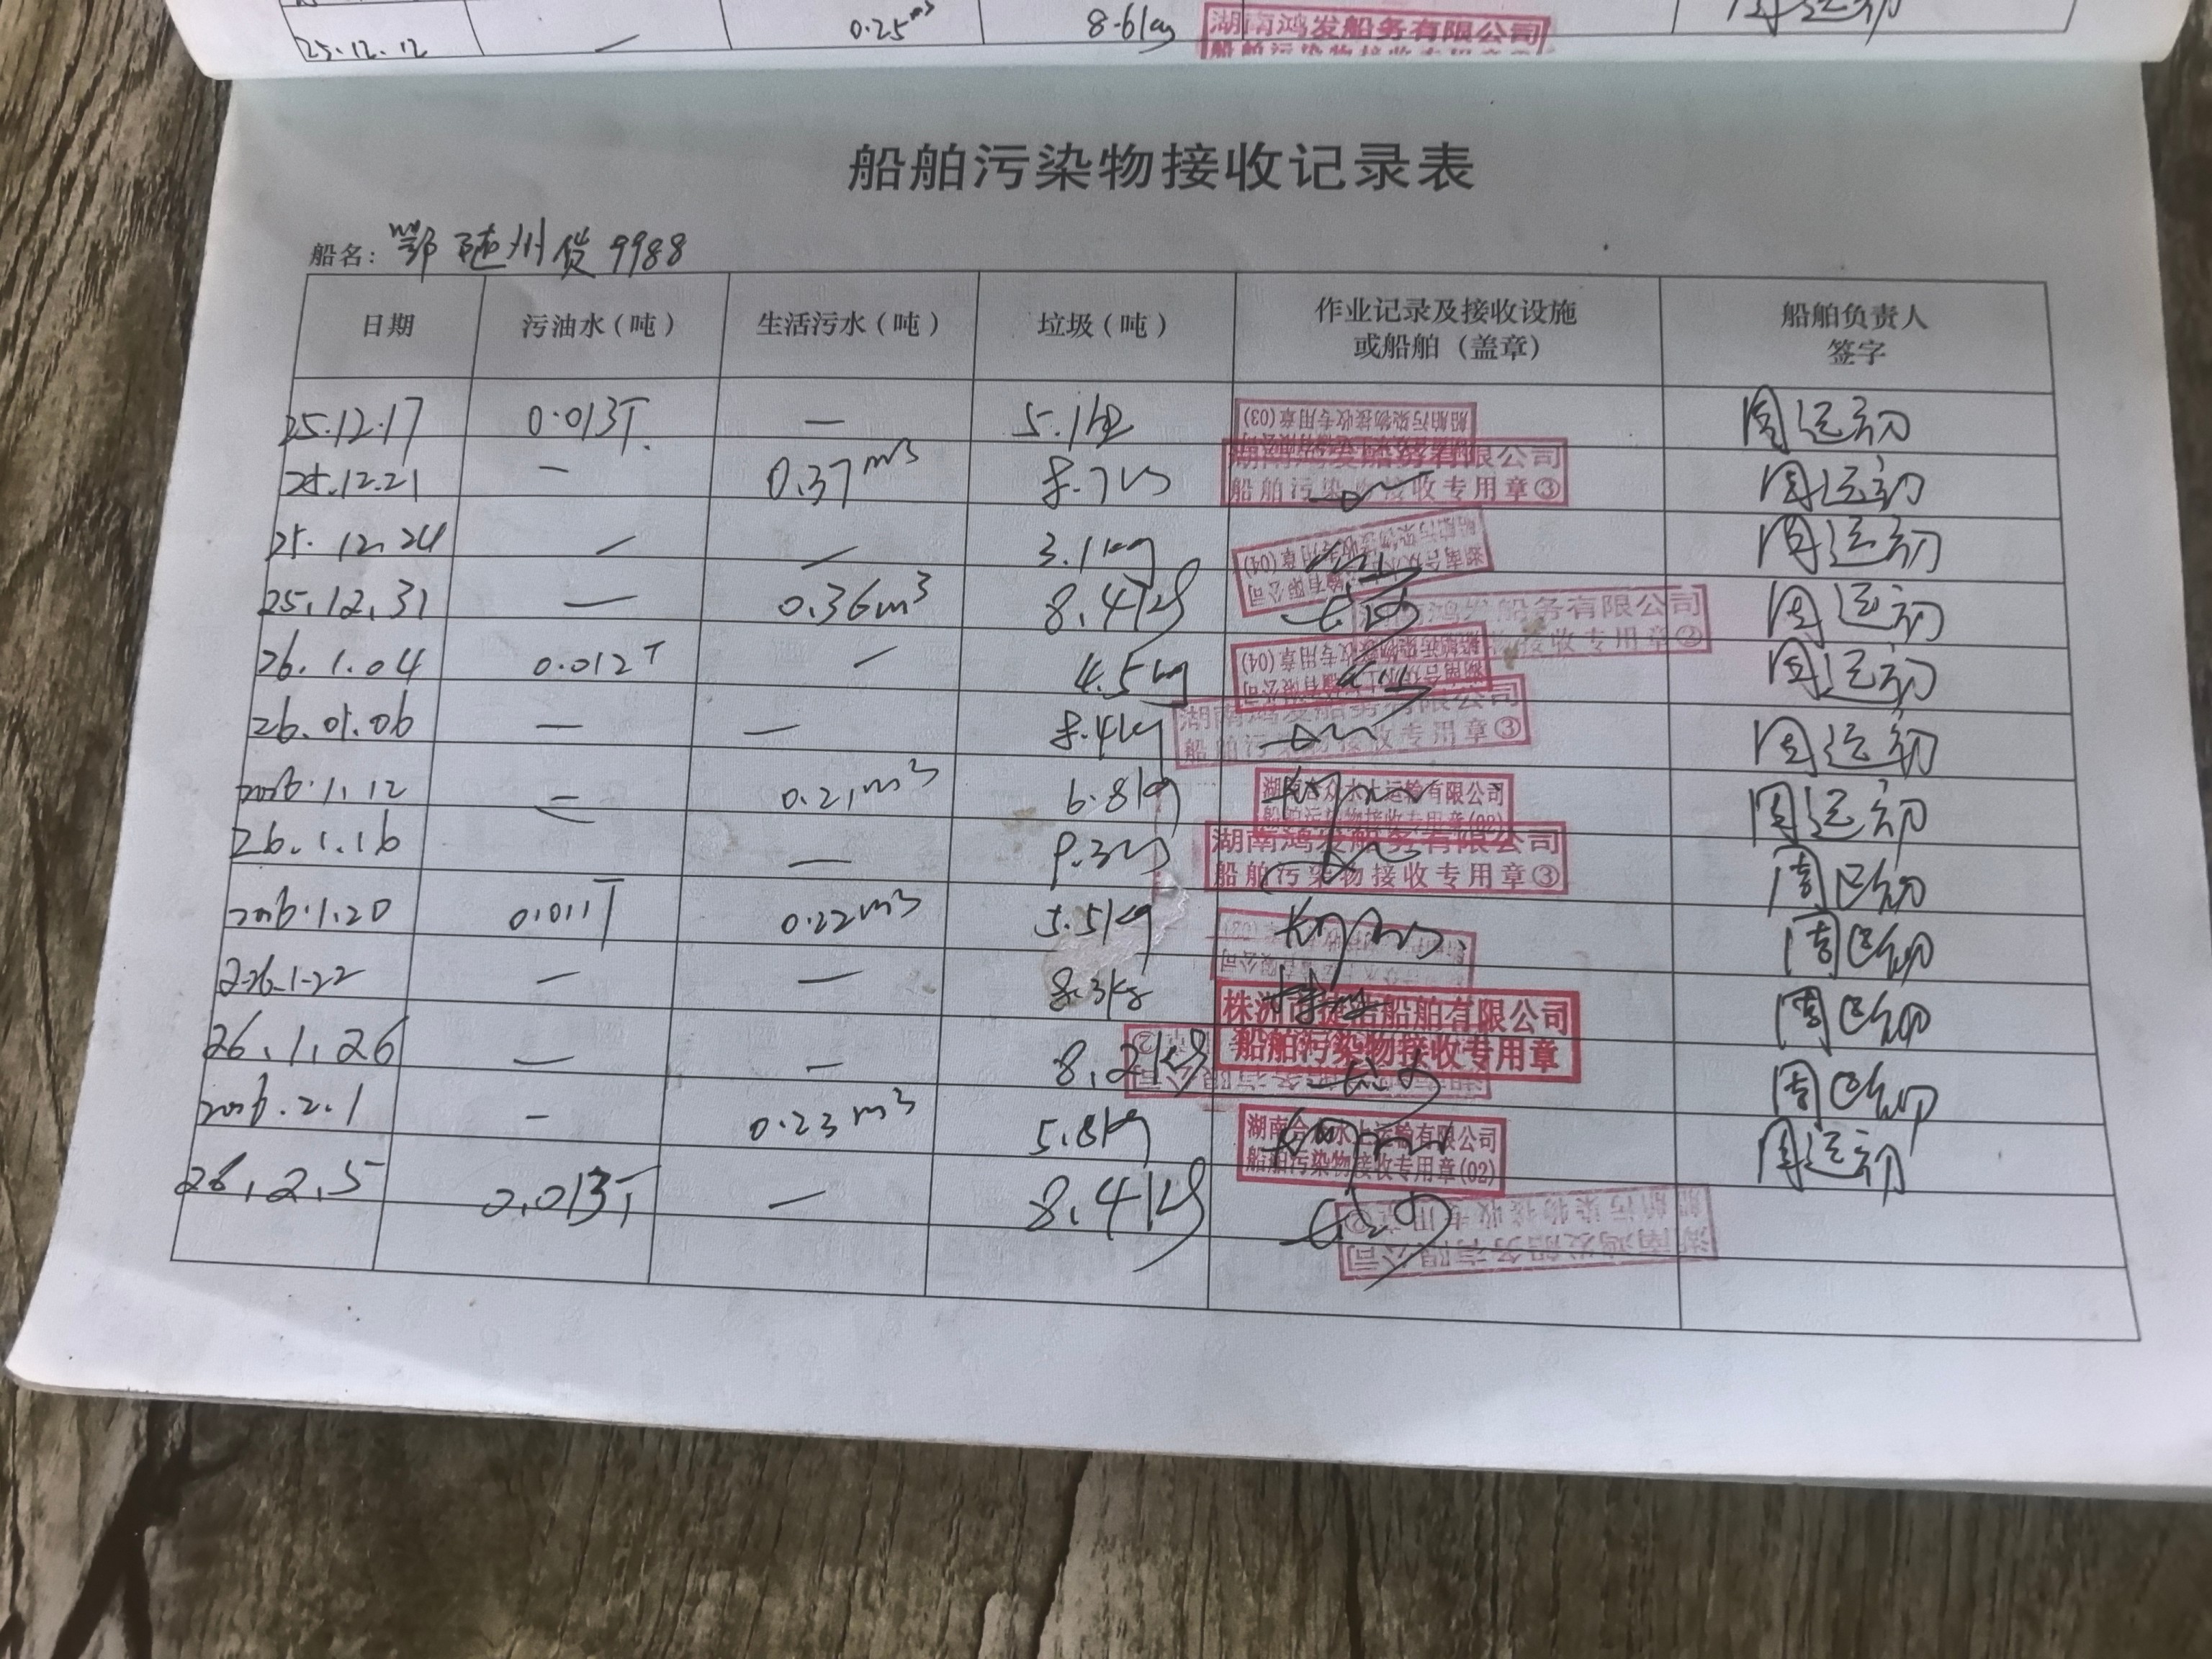 25.12.12 — 0.25m³ 8.6kg 湖南鸿发船务有限公司
船舶污染物接收记录表
船名: 鄂随州货9988
日期 污油水(吨) 生活污水(吨) 垃圾(吨) 作业记录及接收设施 或船舶(盖章) 船舶负责人 签字
25.12.17 0.013T — 5.1kg 船舶污染物接收专用章(03) 周运初
25.12.21 — 0.37m³ 8.7kg 湖南鸿发船务有限公司 船舶污染物接收专用章③ 周运初
25.12.24 — — 3.1kg 船舶污染物接收专用章(04) 周运初
25.12.31 — 0.36m³ 8.4kg 湖南鸿发船务有限公司 物接收专用章② 周运初
26.1.04 0.012T — 4.5kg 船舶污染物接收专用章(04) 周运初
26.01.06 — — 8.4kg 湖南鸿发船务有限公司 船舶污染物接收专用章③ 周运初
2026.1.12 — 0.21m³ 6.8kg 湖南合众水上运输有限公司 船舶污染物接收专用章(02) 周运初
26.1.16 — — 9.3kg 湖南鸿发船务有限公司 船舶污染物接收专用章③ 周运初
2026.1.20 0.011T 0.22m³ 5.5kg 周运初
2026.1.22 — — 8.3kg 株洲 船舶有限公司 船舶污染物接收专用章 周运初
26.1.26 — — 8.2kg 周运初
2026.2.1 — 0.23m³ 5.8kg 湖南合众水上运输有限公司 船舶污染物接收专用章(02) 周运初
26.2.5 0.013T — 8.4kg 湖南鸿发船务有限公司 船舶污染物接收专用章②